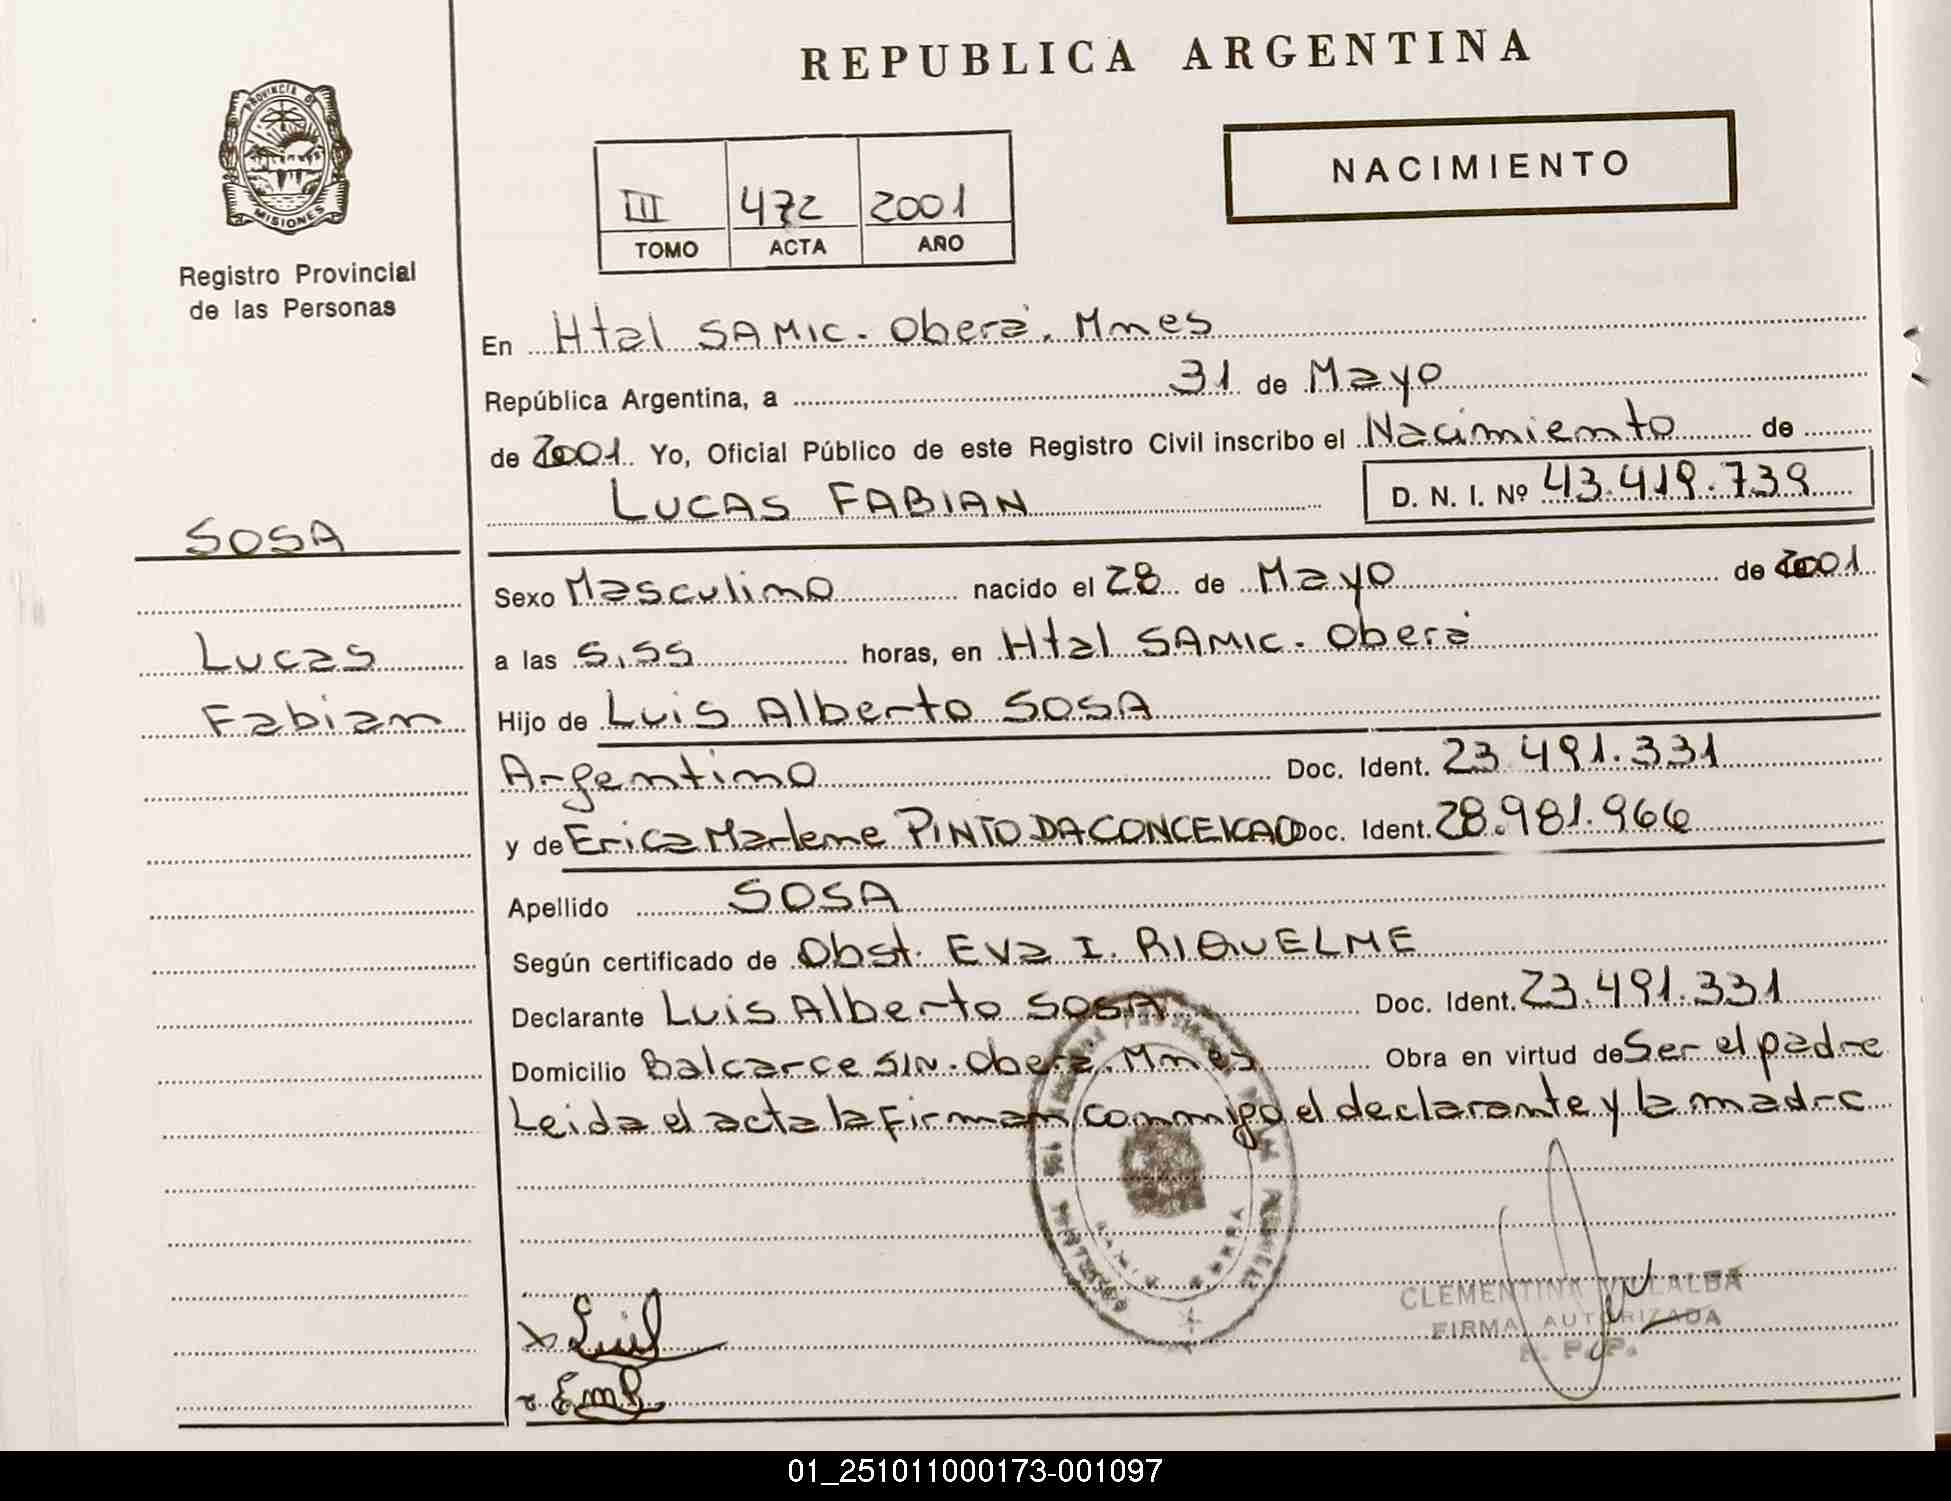 REPUBLICA ARGENTINA
PROVINCIA DE
MISIONES
Registro Provincial
de las Personas
NACIMIENTO
III 472 2001
TOMO ACTA AÑO
En Htal SAMIC. Oberá. Mnes
República Argentina, a 31 de Mayo
de 2001 Yo, Oficial Público de este Registro Civil inscribo el Nacimiento de
LUCAS FABIAN D. N. I. Nº 43.419.739
SOSA
Lucas
Fabian
Sexo Masculino nacido el 28 de Mayo de 2001
a las 5.55 horas, en Htal SAMIC. Oberá
Hijo de Luis Alberto SOSA
Argentino Doc. Ident. 23.491.331
y de Erica Marlene PINTO DA CONCEICAO Doc. Ident. 28.981.966
Apellido SOSA
Según certificado de Obst. Eva I. RIQUELME
Declarante Luis Alberto SOSA Doc. Ident. 23.491.331
Domicilio Balcarce S/N. Oberá. Mnes Obra en virtud de Ser el padre
Leida el acta la firman conmigo el declarante y la madre
CLEMENTINA VILLALBA
FIRMA AUTORIZADA
R. P. P.
01_251011000173-001097